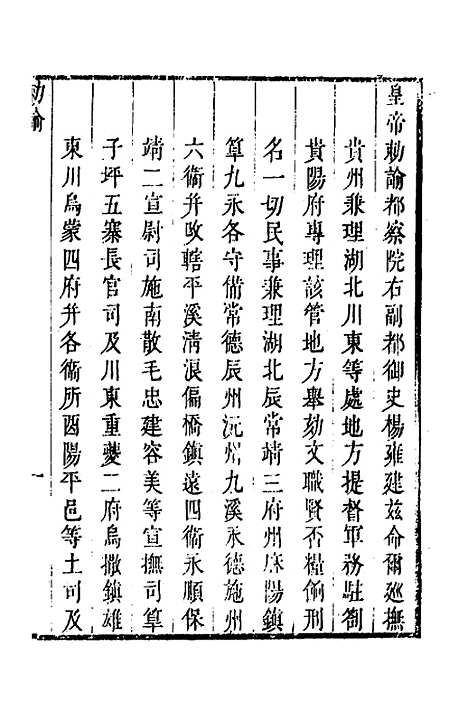 皇帝勅諭都察院右副都御史楊雍建茲命爾廵撫
貴州兼理湖北川東等處地方提督軍務駐劄
貴陽府專理該管地方舉劾文職賢否糧餉刑
名一切民事兼理湖北辰常靖三府州麻陽鎮
筸九永各守備常德辰州沅州九溪永德施州
六衞并改轄平溪清浪偏橋鎮遠四衞永順保
靖二宣尉司施南散毛忠建容美等宣撫司筸
子坪五寨長官司及川東重夔二府烏撒鎮雄
東川烏蒙四府并各衞所酉陽平邑等土司及
勅諭
一